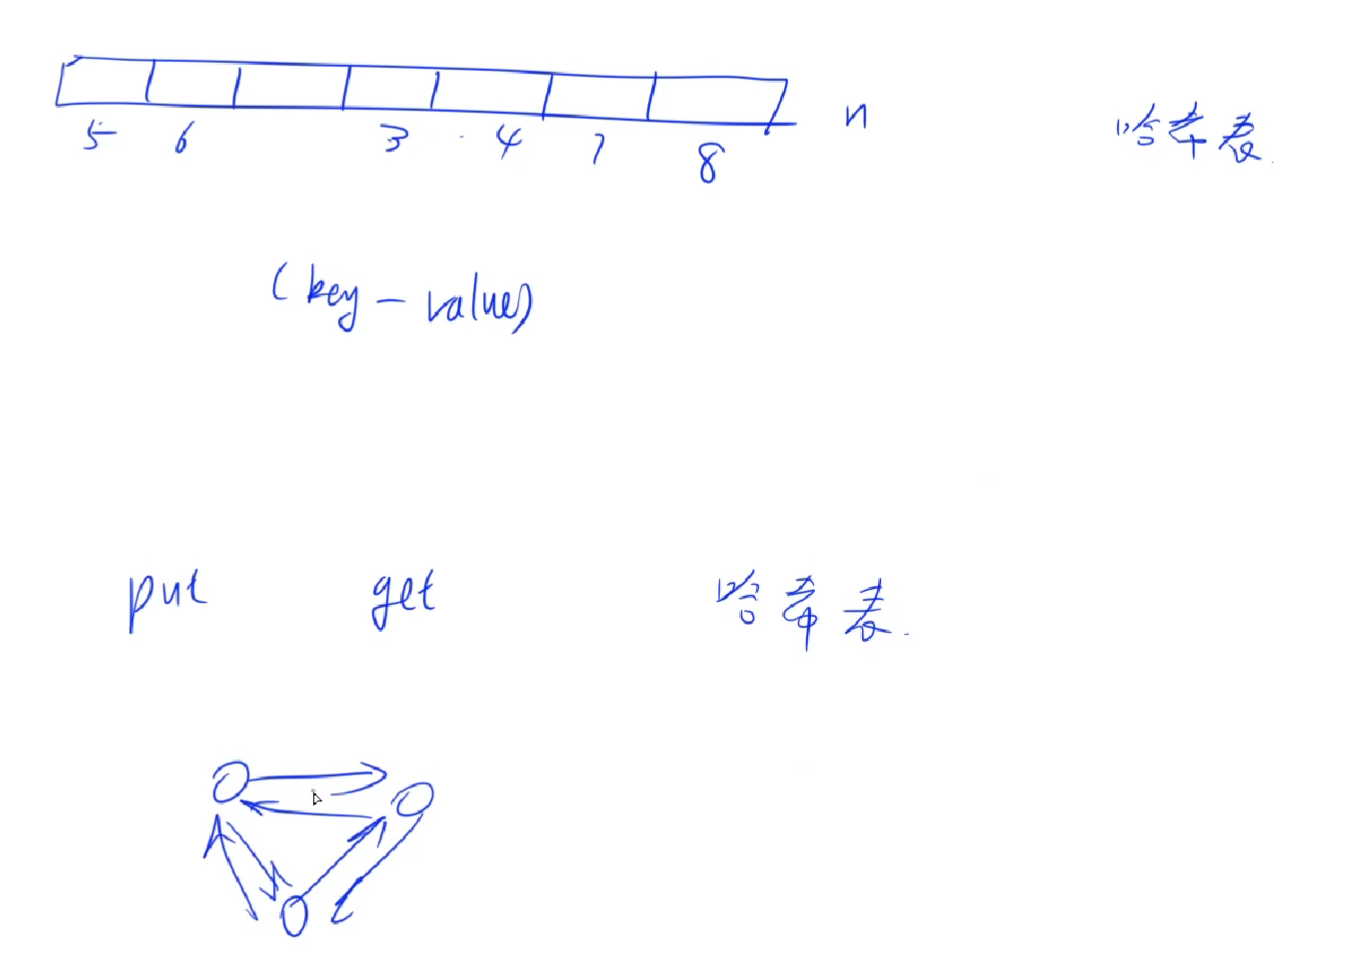 5 6 3 4 7 8 n 哈希表
(key - value)
put get 哈希表.